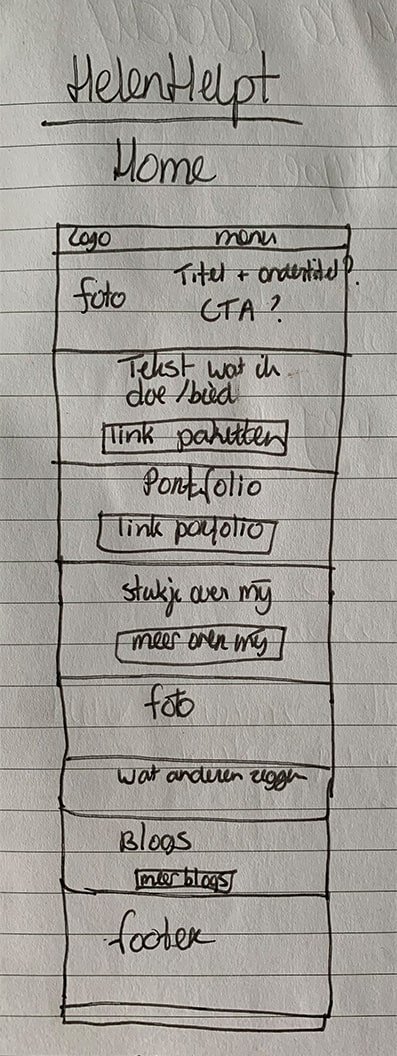 HelenHelpt
Home
Logo menu
foto Titel + ondertitel?
CTA ?
Tekst wat ik
doe /bied
link paketten
Portfolio
link porfolio
stukje over mij
meer over mij
foto
wat anderen zeggen
Blogs
meer blogs
footer